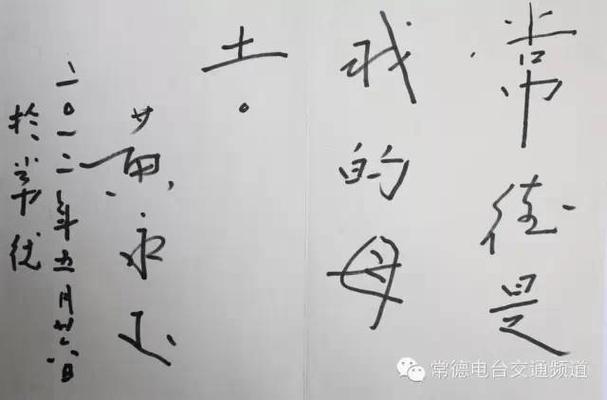 常德是
我的母
土。
黄永玉
二〇一二年五月廿六日
於常德
常德电台交通频道